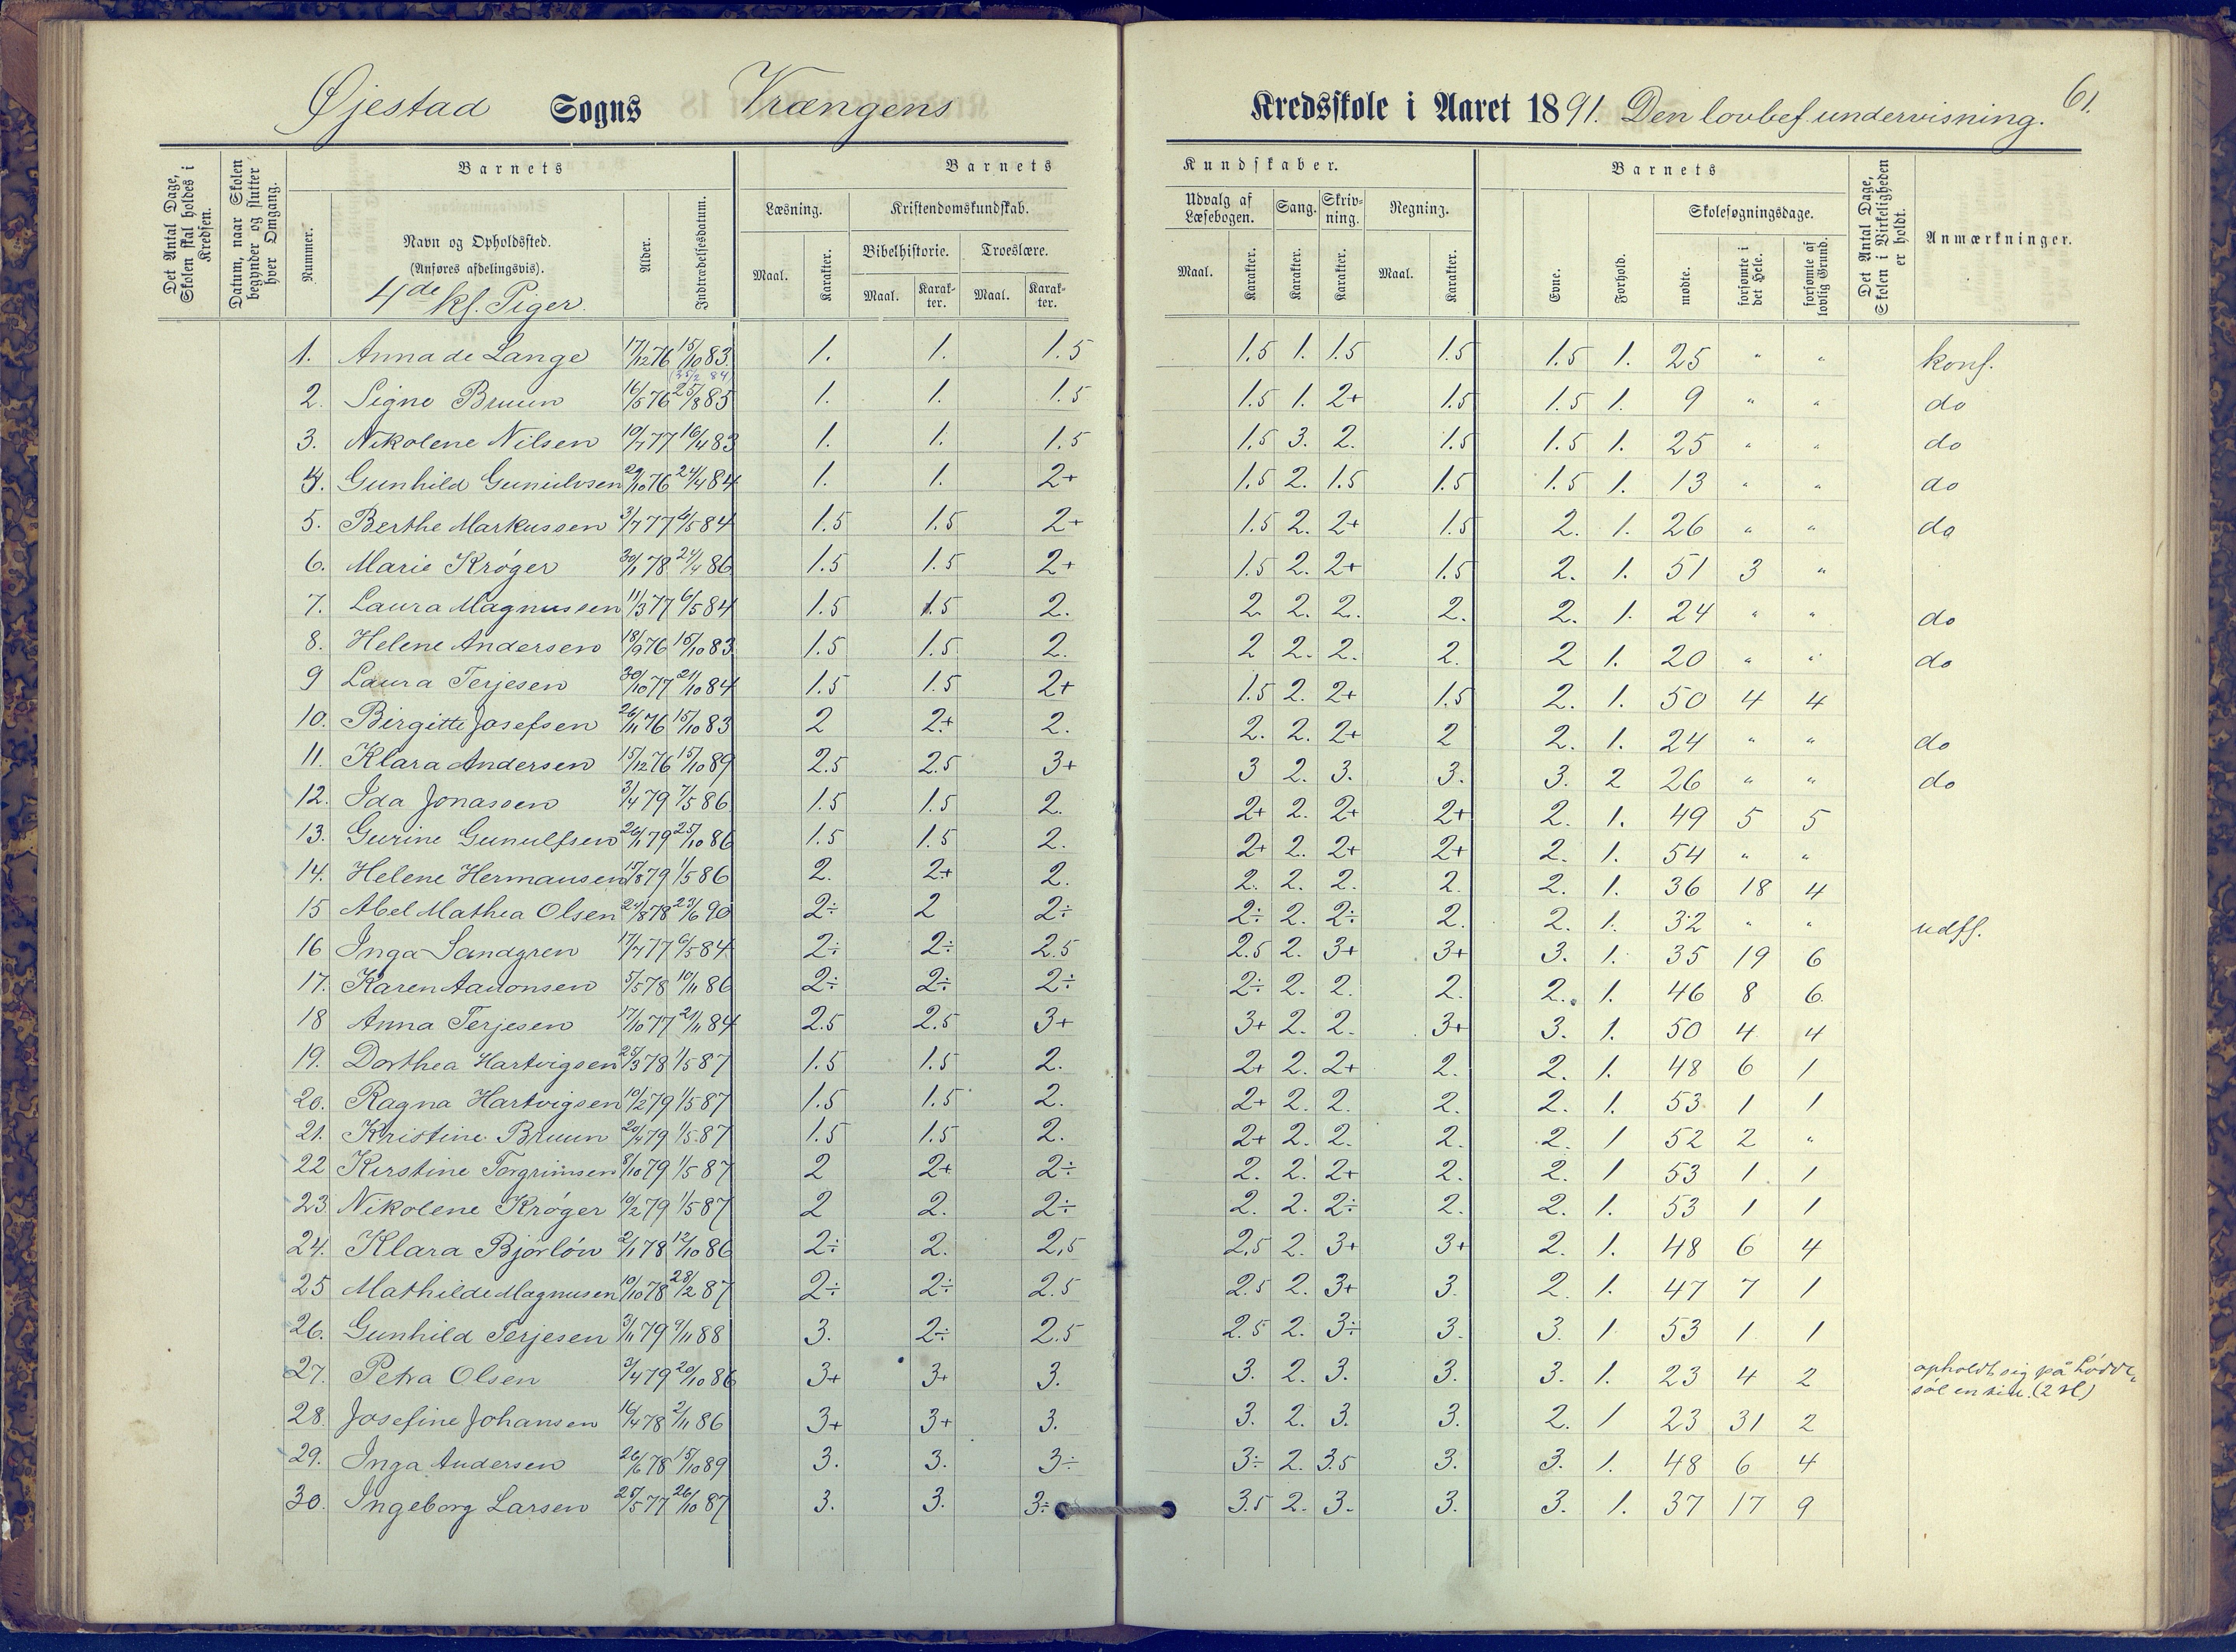 Øjestad Sogns Vrængens Kredsskole i Aaret 1891. Den lovbef. undervisning. 61.
Det Antal Dage, Skolen skal holdes i Kredsen.
Datum, naar Skolen begynder og slutter hver Omgang.
Barnets
Nummer.
Navn og Opholdssted.
(Anføres afdelingsvis).
4de kl. Piger.
Alder.
Indtrædelsesdatum.
Barnets Kundskaber.
Læsning. Kristendomskundskab. Udvalg af Læsebogen. Sang. Skrivning. Regning.
Bibelhistorie. Troeslære.
Maal. Karakter. Maal. Karakter. Maal. Karakter. Maal. Karakter. Karakter. Karakter. Maal. Karakter.
Barnets
Evne. Forhold. Skolesøgningsdage.
mødte. forsømte i det Hele. forsømte af lovlig Grund.
Det Antal Dage, Skolen i Virkeligheden er holdt.
Anmærkninger.
1. Anna de Lange 17/12 76 15/10 83. 1. 1. 1.5 1.5 1. 1.5 1.5 1.5 1. 25 " " konf.
2. Signe Bruun 16/5 76 25/8 85 1. 1. 1.5 1.5 1. 2+ 1.5 1.5 1. 9 " " do
3. Nikolene Nilsen 10/7 77 16/4 83 1. 1. 1.5 1.5 3. 2. 1.5 1.5 1. 25 " " do
4. Gunhild Gunulvsen 29/10 76 24/4 84 1. 1. 2+ 1.5 2. 1.5 1.5 1.5 1. 13 " " do
5. Berthe Markussen 3/7 77 6/5 84 1.5 1.5 2+ 1.5 2. 2+ 1.5 2. 1. 26 " " do
6. Marie Krøger 30/1 78 24/4 86 1.5 1.5 2+ 1.5 2. 2+ 1.5 2. 1. 51 3 "
7. Laura Magnussen 11/3 77 6/5 84 1.5 1.5 2. 2 2. 2. 2. 2. 1. 24 " " do
8. Helene Andersen 18/9 76 15/10 83 1.5 1.5 2. 2 2. 2. 2. 2 1. 20 " " do
9 Laura Terjesen 30/10 77 21/10 84 1.5 1.5 2+ 1.5 2. 2+ 1.5 2. 1. 50 4 4
10. Birgitte Josefsen 26/11 76 15/10 83 2 2+ 2. 2. 2. 2+ 2 2. 1. 24 " " do
11. Klara Andersen 15/12 76 15/10 89 2.5 2.5 3+ 3 2. 3. 3. 3. 2 26 " " do
12. Ida Jonassen 3/4 79 7/5 86 1.5 1.5 2. 2+ 2. 2+ 2+ 2. 1. 49 5 5
13. Gurine Gunulfsen 26/1 79 25/10 86 1.5 1.5 2. 2+ 2. 2+ 2+ 2. 1. 54 " "
14. Helene Hermansen 15/8 79 1/5 86 2. 2+ 2. 2. 2. 2. 2. 2. 1. 36 18 4
15 Abel Mathea Olsen 24/8 78 23/6 90 2÷ 2 2÷ 2÷ 2. 2÷ 2. 2. 1. 32 " " udfl.
16 Inga Sandgren 17/7 77 6/5 84 2÷ 2÷ 2.5 2.5 2. 3+ 3+ 3. 1. 35 19 6
17. Karen Aanonsen 5/5 78 10/11 86 2÷ 2÷ 2÷ 2÷ 2. 2. 2. 2. 1. 46 8 6.
18 Anna Terjesen 17/10 77 21/11 84 2.5 2.5 3+ 3+ 2. 2. 3+ 3. 1. 50 4 4
19. Dorthea Hartvigsen 25/3 78 1/5 87 1.5 1.5 2. 2+ 2. 2+ 2. 2. 1. 48 6 1
20. Ragna Hartvigsen 10/2 79 1/5 87 1.5 1.5 2. 2+ 2. 2. 2. 2. 1. 53 1 1
21. Kristine Bruun 20/4 79 1/5 87 1.5 1.5 2. 2+ 2. 2. 2. 2. 1 52 2 "
22 Kirstine Torgrimsen 8/10 79 1/5 87 2 2+ 2÷ 2. 2. 2+ 2. 2. 1 53 1 1
23. Nikolene Krøger 10/2 79 1/5 87 2 2. 2÷ 2. 2. 2÷ 2. 2. 1. 53 1 1
24. Klara Bjorløw 2/1 78 12/10 86 2÷ 2. 2,5 2,5 2. 3+ 3+ 2. 1. 48 6 4
25 Mathilde Magnusen 10/10 78 28/2 87 2÷ 2÷ 2.5 2.5 2. 3+ 3. 2. 1. 47 7 1
26. Gunhild Terjesen 3/11 79 9/11 88 3. 2÷ 2.5 2.5 2. 3÷ 3. 3. 1 53 1 1
27. Petra Olsen 3/4 79 20/10 86 3+ 3+ 3. 3. 2. 3. 3. 3. 1. 23 4 2 opholdt sig på
28. Josefine Johansen 16/4 78 2/11 86 3+ 3+ 3. 3. 2. 3. 3. 2. 1 23 31 2
29. Inga Andersen 26/6 78 15/10 89 3. 3. 3÷ 3÷ 2. 3.5 3. 3. 1. 48 6 4
30. Ingeborg Larsen 25/5 77 26/10 87 3. 3. 3÷ 3.5 2. 3. 3. 3. 1. 37 17 9